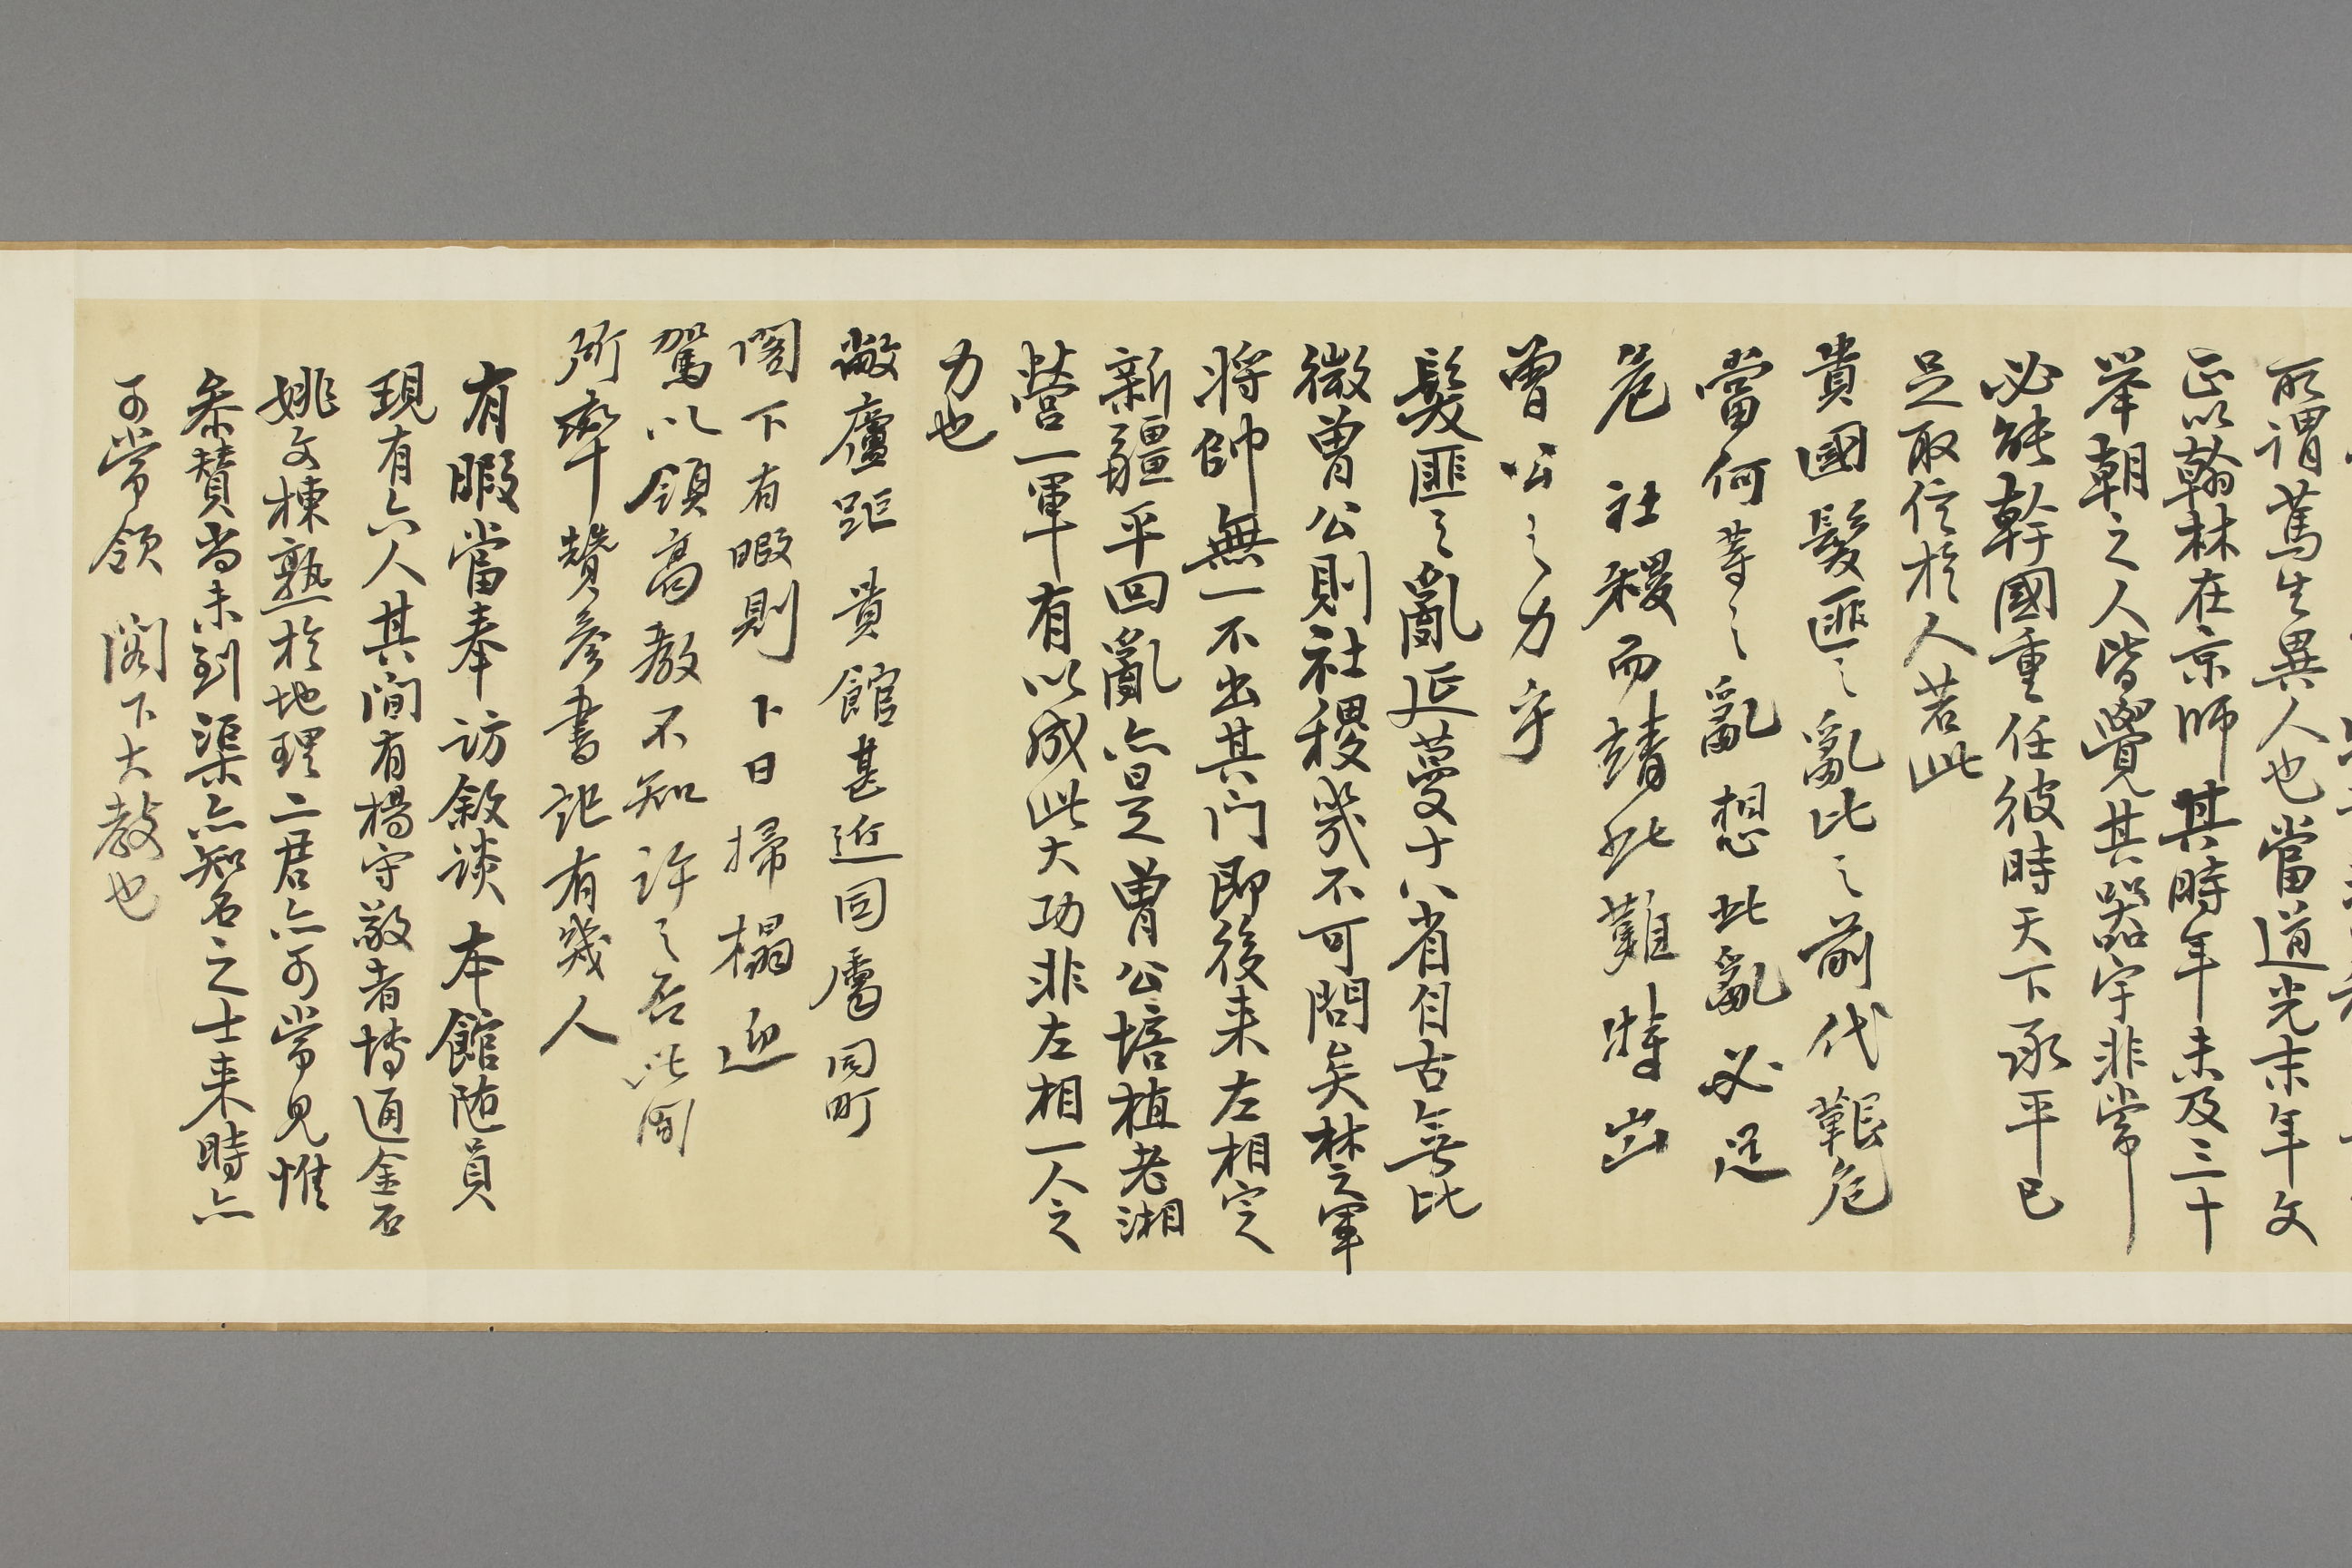 所謂篤生異人也當道光末年文
正以翰林在京師其時年未及三十
举朝之人皆覺其器宇非常
必能幹國重任彼時天下承平已
足取信於人若此
貴國髮匪之亂比之前代艱危
當何等之亂想此亂必足
危 社稷而靖此難特出
曾公之力乎
髮匪之亂延蔓十八省自古無比
微曾公則社稷幾不可問矣楚軍
將帥無一不出其门即後来左相定
新疆平回亂亦是曾公培植老湘
營一軍有以成此大功非左相一人之
力也
敝廬距 貴館甚近同屬同町
閣下有暇則卜日掃榻迎
駕以領高教不知許之否此間
所率贊參書記有幾人
有暇當奉訪敘談 本館随員
現有六人其间有楊守敬者博通金石
姚文棟熟於地理二君亦可常見惟
参賛尚未到渠亦知名之士来時亦
可常領 閣下大教也